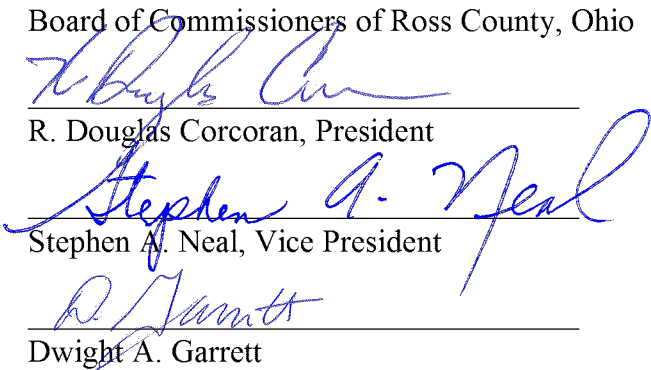 Board of Commissioners of Ross County, Ohio
R. Douglas Corcoran, President
Stephen A. Neal
Stephen A. Neal, Vice President
D. Garrett
Dwight A. Garrett